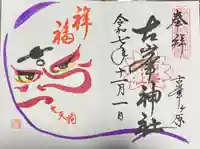 奉拝
古峯ヶ原
古峯神社
令和七年十一月一日
祥福
大天狗